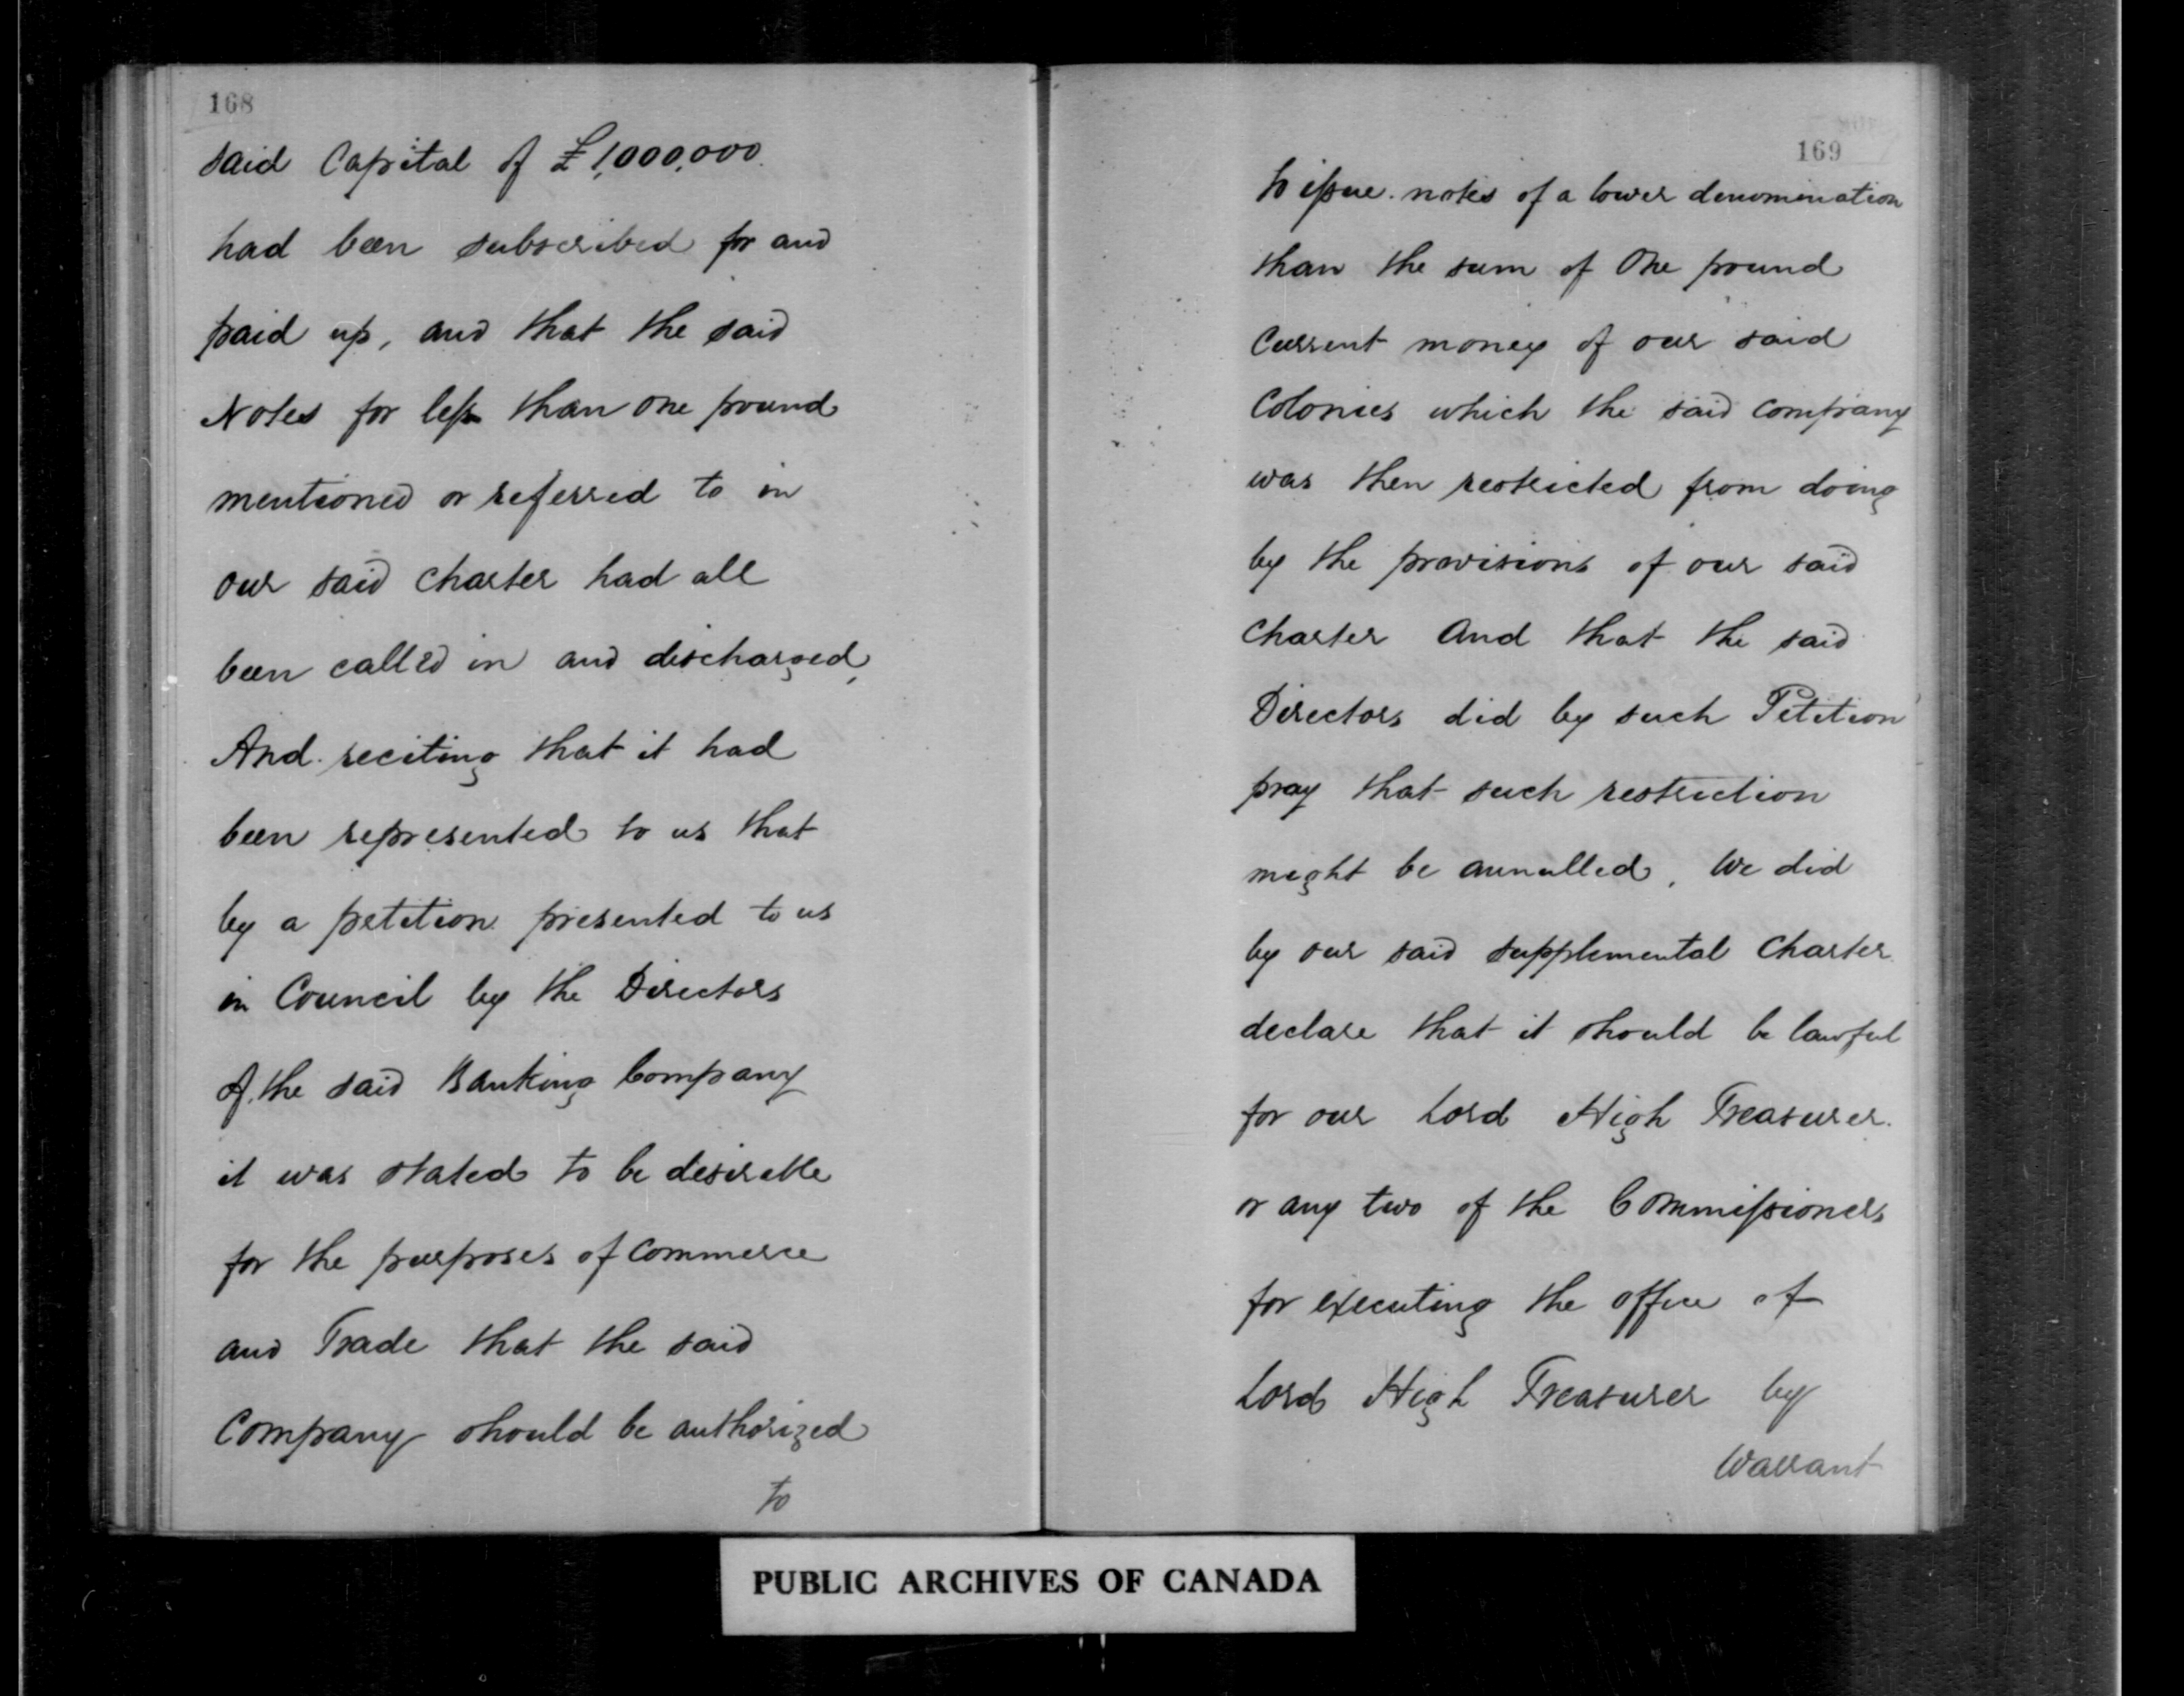 168
said Capital of £1,000,000.
had been subscribed for and
paid up, and that the said
Notes for less than one pound
mentioned or referred to in
our said charter had all
been called in and discharged,
And reciting that it had
been represented to us that
by a petition presented to us
in Council by the Directors
of the said Banking Company
it was stated to be desirable
for the purposes of Commerce
and Trade that the said
Company should be authorized
to
169
to issue notes of a lower denomination
than the sum of One pound
Current money of our said
Colonies which the said Company
was then restricted from doing
by the provisions of our said
Charter And that the said
Directors did by such Petition
pray that such restriction
might be annulled, We did
by our said supplemental Charter
declare that it should be lawful
for our Lord High Treasurer
or any two of the Commissioners
for executing the office of
Lord High Treasurer by
Warrant
PUBLIC ARCHIVES OF CANADA